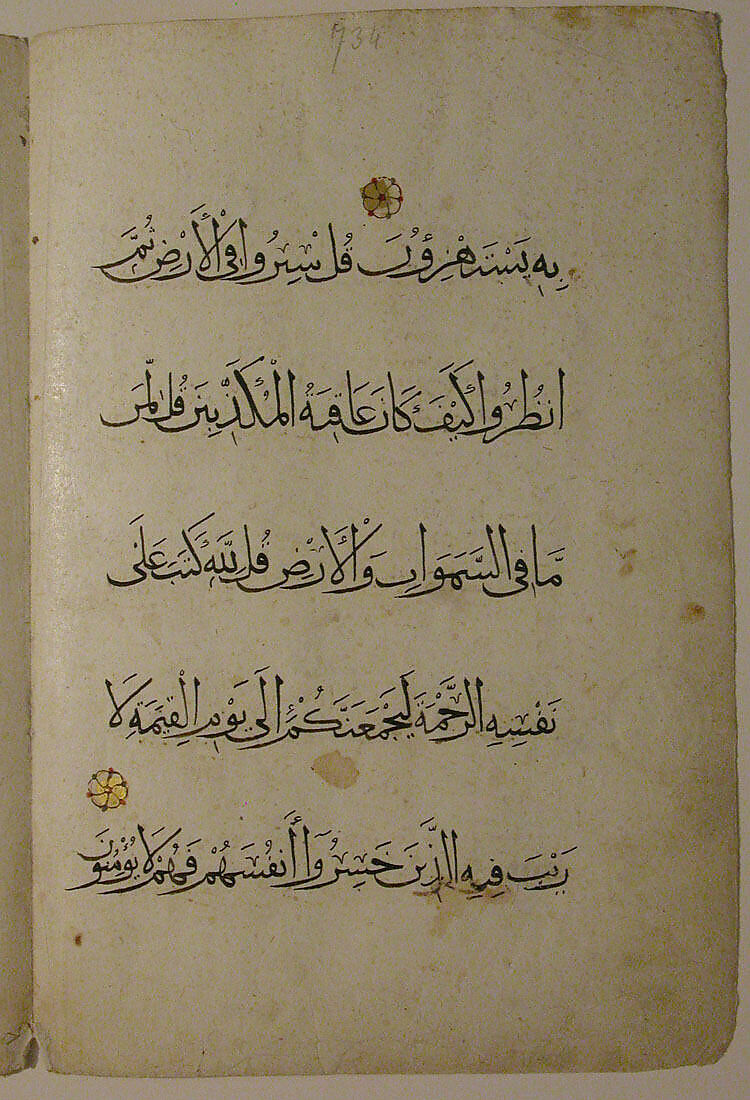 734
بِهِ يَسْتَهْزِؤُنَ قُلْ سِيرُوا فِي الْأَرْضِ ثُمَّ
انظُرُوا كَيْفَ كَانَ عَاقِبَةُ الْمُكَذِّبِينَ قُل لِّمَن
مَّا فِي السَّمَوَاتِ وَالْأَرْضِ قُل لِلَّهِ كَتَبَ عَلَى
نَفْسِهِ الرَّحْمَةَ لَيَجْمَعَنَّكُمْ إِلَى يَوْمِ الْقِيَمَةِ لَا
رَيْبَ فِيهِ الَّذِينَ خَسِرُوا أَنفُسَهُمْ فَهُمْ لَا يُؤْمِنُونَ